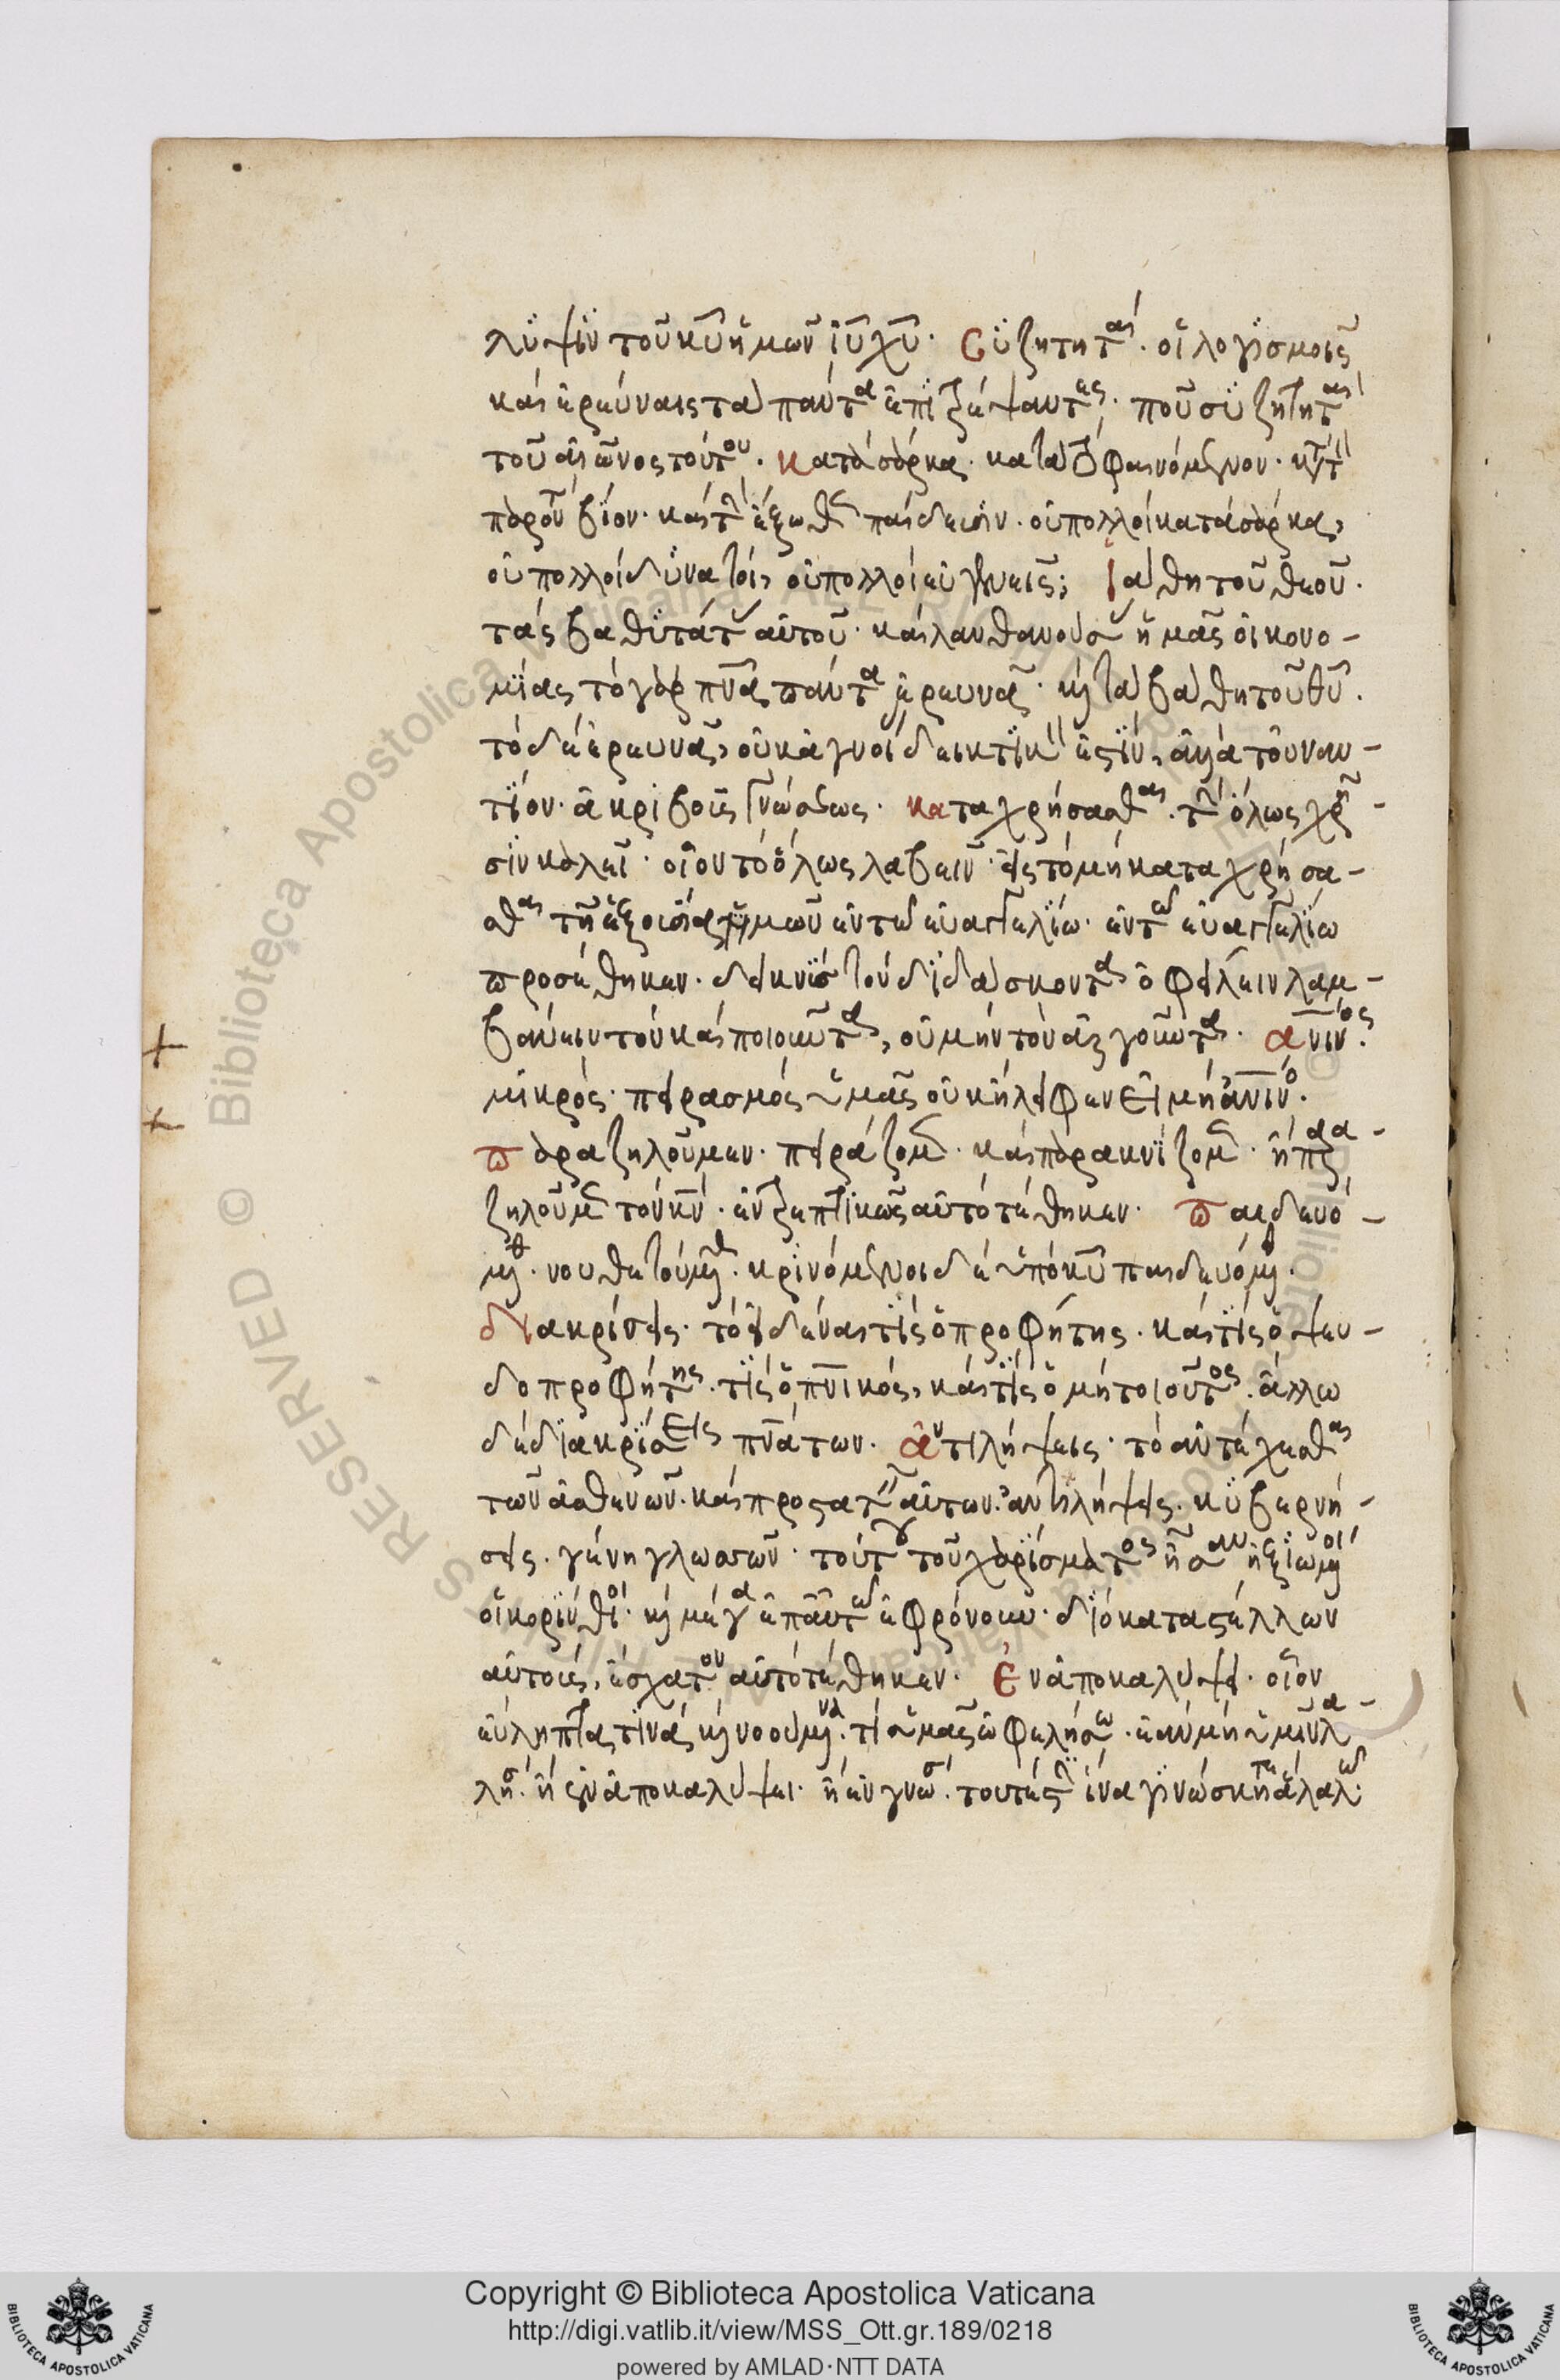 λύψιν τοῦ κῡ ἡμῶν ἰῡ χῡ· Συζητηταί· οἱ λογισμοῖς
καὶ ἐρεύναις τὰ πάντα ἐπιτρέψαντες· ποῦ συζητηταὶ
τοῦ αἰῶνος τούτου· κατὰ σάρκα· κατὰ τὸ φαινόμενον· κατὰ τὸν
παρόντα βίον· καὶ τὴν ἔξωθεν παίδευσιν· οὐ πολλοὶ κατὰ σάρκα,
οὐ πολλοὶ δυνατοί, οὐ πολλοὶ εὐγενεῖς; βάθη τοῦ θεοῦ·
τὰς βαθυτάτας αὐτοῦ· καὶ λανθανούσας ἡμᾶς οἰκονο-
μίας τὸ γὰρ πνᾱ πάντα ἐρευνᾶ· καὶ τὰ βάθη τοῦ θῡ.
τὸ δὲ ἐρευνᾶ, οὐκ ἀγνοίας δεικτικόν ἐστιν, ἀλλὰ τοὐναν-
τίον· ἀκριβοῦς γνώσεως· καταχρήσασθαι· τὴν ὅλως χρῆ-
σιν καλεῖ· οἷον τὸ ὅλως λαβεῖν· εἰς τὸ μὴ καταχρήσα-
σθαι τῇ ἐξουσίᾳ ὑμῶν ἐν τῶ εὐαγγελίω· ἐν τῶ εὐαγγελίω
προσέθηκεν· δεικνὺς τὸν διδάσκοντα ὀφείλειν λαμ-
βάνειν τὸν καὶ ποιοῦντα, οὐ μὴν τὸν ἀργοῦντα· ἀνινος·
μικρός· πειρασμὸς ὑμᾶς οὐκ εἴληφεν εἰ μὴ ἀνινο·
παραζηλοῦμεν· πειράζομεν· καὶ παρακνίζομεν· ἢ παρα-
ζηλοῦμεν τὸν κν̄· ἐντρεπτικῶς αὐτὸ τέθηκεν· παιδευό-
μεθα· νουθετούμεθα· κρινόμενοι δὲ ὑπὸ κῡ παιδευόμεθα.
διακρίσεις· τὸ εἰδέναι τίς ὁ προφήτης· καὶ τίς ὁ ψευ-
δοπροφήτης· τίς ὁ πνικός, καὶ τίς ὁ μὴ τοιοῦτος· ἄλλω
δὲ διακρίσεις πνάτων· ἀντιλήψεις· τὸ ἀντέχεσθαι
τῶν ἀσθενῶν· καὶ προστατεῖν αὐτῶν· ἀντιλήψεις· κυβερνή-
σεις· γένη γλωσσῶν· τούτου τοῦ χαρίσματος ἦσαν ἠξιωμένοι
οἱ κορίνθιοι· καὶ μέγα ἐπ' αὐτῶ ἐφρόνουν· διὸ καταστέλλων
αὐτούς, ἔσχατον αὐτὸ τέθηκεν· ἐν ἀποκαλύψει· οἷον
εὐληπτά τινα καὶ νοούμενα· τί ὑμᾶς ὠφελήσω· ἐὰν μὴ ὑμῖν λα-
λήσω· ἢ ἐν ἀποκαλύψει· ἢ ἐν γνώσει· τουτέστιν ἵνα γινώσκηται ἃ λαλῶ·
Copyright © Biblioteca Apostolica Vaticana
http://digi.vatlib.it/view/MSS_Ott.gr.189/0218
powered by AMLAD·NTT DATA